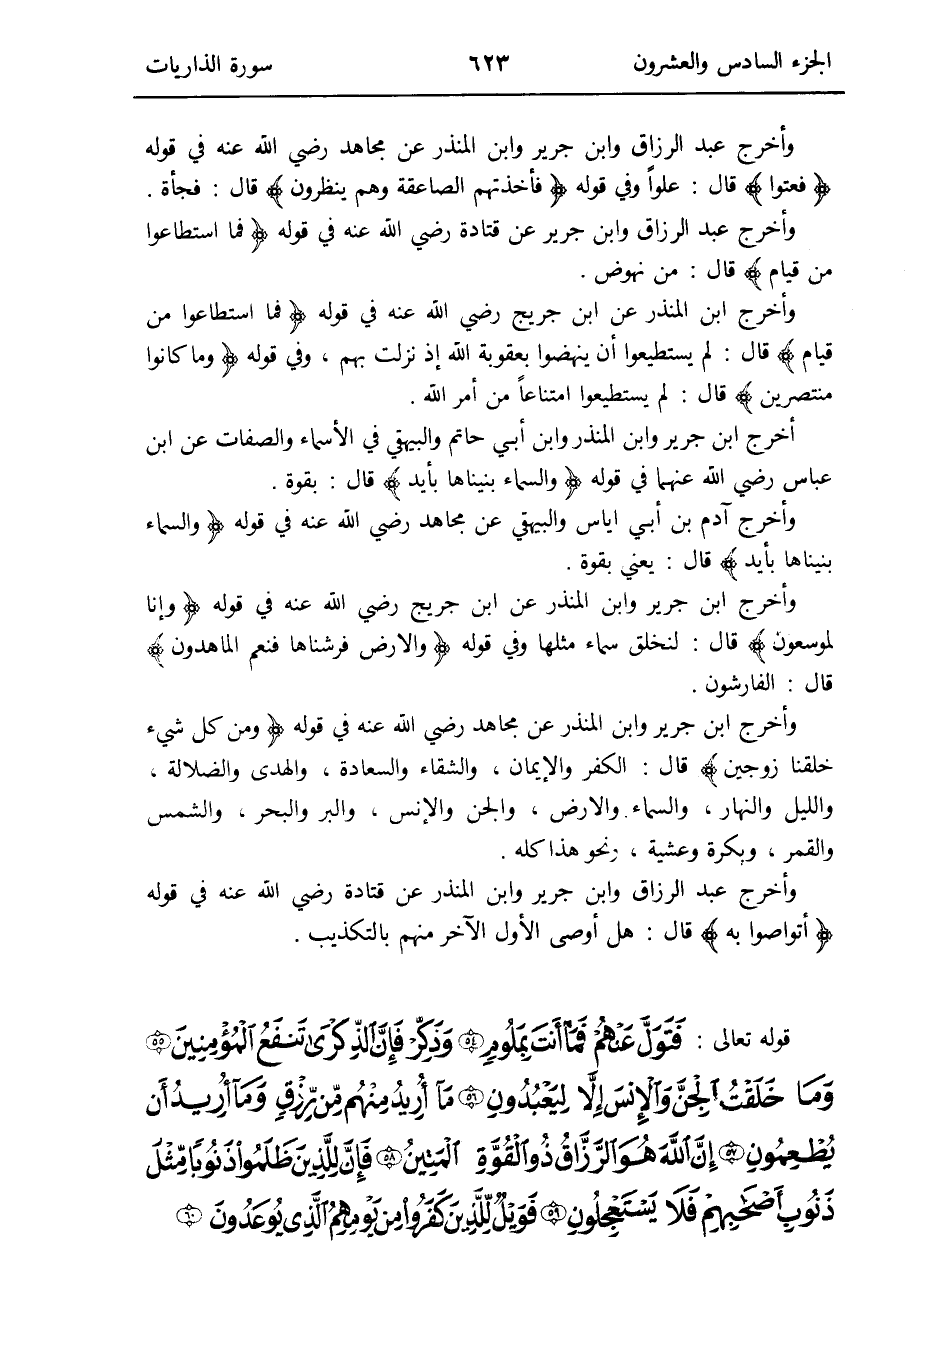 الجزء السادس والعشرون ٦٢٣ سورة الذاريات
وأخرج عبد الرزاق وابن جرير وابن المنذر عن مجاهد رضي الله عنه في قوله
﴿ فعتوا ﴾ قال : علواً وفي قوله ﴿ فأخذتهم الصاعقة وهم ينظرون ﴾ قال : فجأة .
وأخرج عبد الرزاق وابن جرير عن قتادة رضي الله عنه في قوله ﴿ فما استطاعوا
من قيام ﴾ قال : من نهوض .
وأخرج ابن المنذر عن ابن جريج رضي الله عنه في قوله ﴿ فما استطاعوا من
قيام ﴾ قال : لم يستطيعوا أن ينهضوا بعقوبة الله إذ نزلت بهم ، وفي قوله ﴿ وما كانوا
منتصرين ﴾ قال : لم يستطيعوا امتناعاً من أمر الله .
أخرج ابن جرير وابن المنذر وابن أبي حاتم والبيهقي في الأسماء والصفات عن ابن
عباس رضي الله عنهما في قوله ﴿ والسماء بنيناها بأيد ﴾ قال : بقوة .
وأخرج آدم بن أبي اياس والبيهقي عن مجاهد رضي الله عنه في قوله ﴿ والسماء
بنيناها بأيد ﴾ قال : يعني بقوة .
وأخرج ابن جرير وابن المنذر عن ابن جريج رضي الله عنه في قوله ﴿ وإنا
لموسعون ﴾ قال : لنخلق سماء مثلها وفي قوله ﴿ والارض فرشناها فنعم الماهدون ﴾
قال : الفارشون .
وأخرج ابن جرير وابن المنذر عن مجاهد رضي الله عنه في قوله ﴿ ومن كل شيء
خلقنا زوجين ﴾ قال : الكفر والإيمان ، والشقاء والسعادة ، والهدى والضلالة ،
والليل والنهار ، والسماء والارض ، والجن والإنس ، والبر والبحر ، والشمس
والقمر ، وبكرة وعشية ، ونحو هذا كله .
وأخرج عبد الرزاق وابن جرير وابن المنذر عن قتادة رضي الله عنه في قوله
﴿ أتواصوا به ﴾ قال : هل أوصى الأول الآخر منهم بالتكذيب .
قوله تعالى : فَتَوَلَّ عَنْهُمْ فَمَآ أَنتَ بِمَلُومٍ ٥٤ وَذَكِّرْ فَإِنَّ الذِّكْرَىٰ تَنفَعُ الْمُؤْمِنِينَ ٥٥
وَمَا خَلَقْتُ الْجِنَّ وَالْإِنسَ إِلَّا لِيَعْبُدُونِ ٥٦ مَآ أُرِيدُ مِنْهُم مِّن رِّزْقٍ وَمَآ أُرِيدُ أَن
يُطْعِمُونِ ٥٧ إِنَّ اللَّهَ هُوَ الرَّزَّاقُ ذُو الْقُوَّةِ الْمَتِينُ ٥٨ فَإِنَّ لِلَّذِينَ ظَلَمُوا۟ ذَنُوبًا مِّثْلَ
ذَنُوبِ أَصْحَٰبِهِمْ فَلَا يَسْتَعْجِلُونِ ٥٩ فَوَيْلٌ لِّلَّذِينَ كَفَرُوا۟ مِن يَوْمِهِمُ الَّذِى يُوعَدُونَ ٦٠